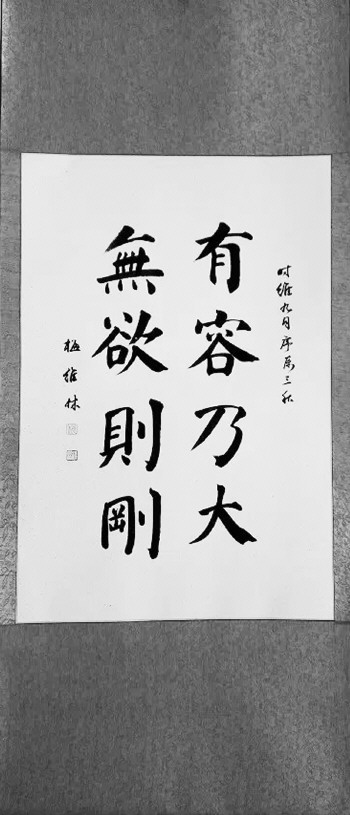 时维九月序属三秋
有容乃大
無欲則剛
梅维林